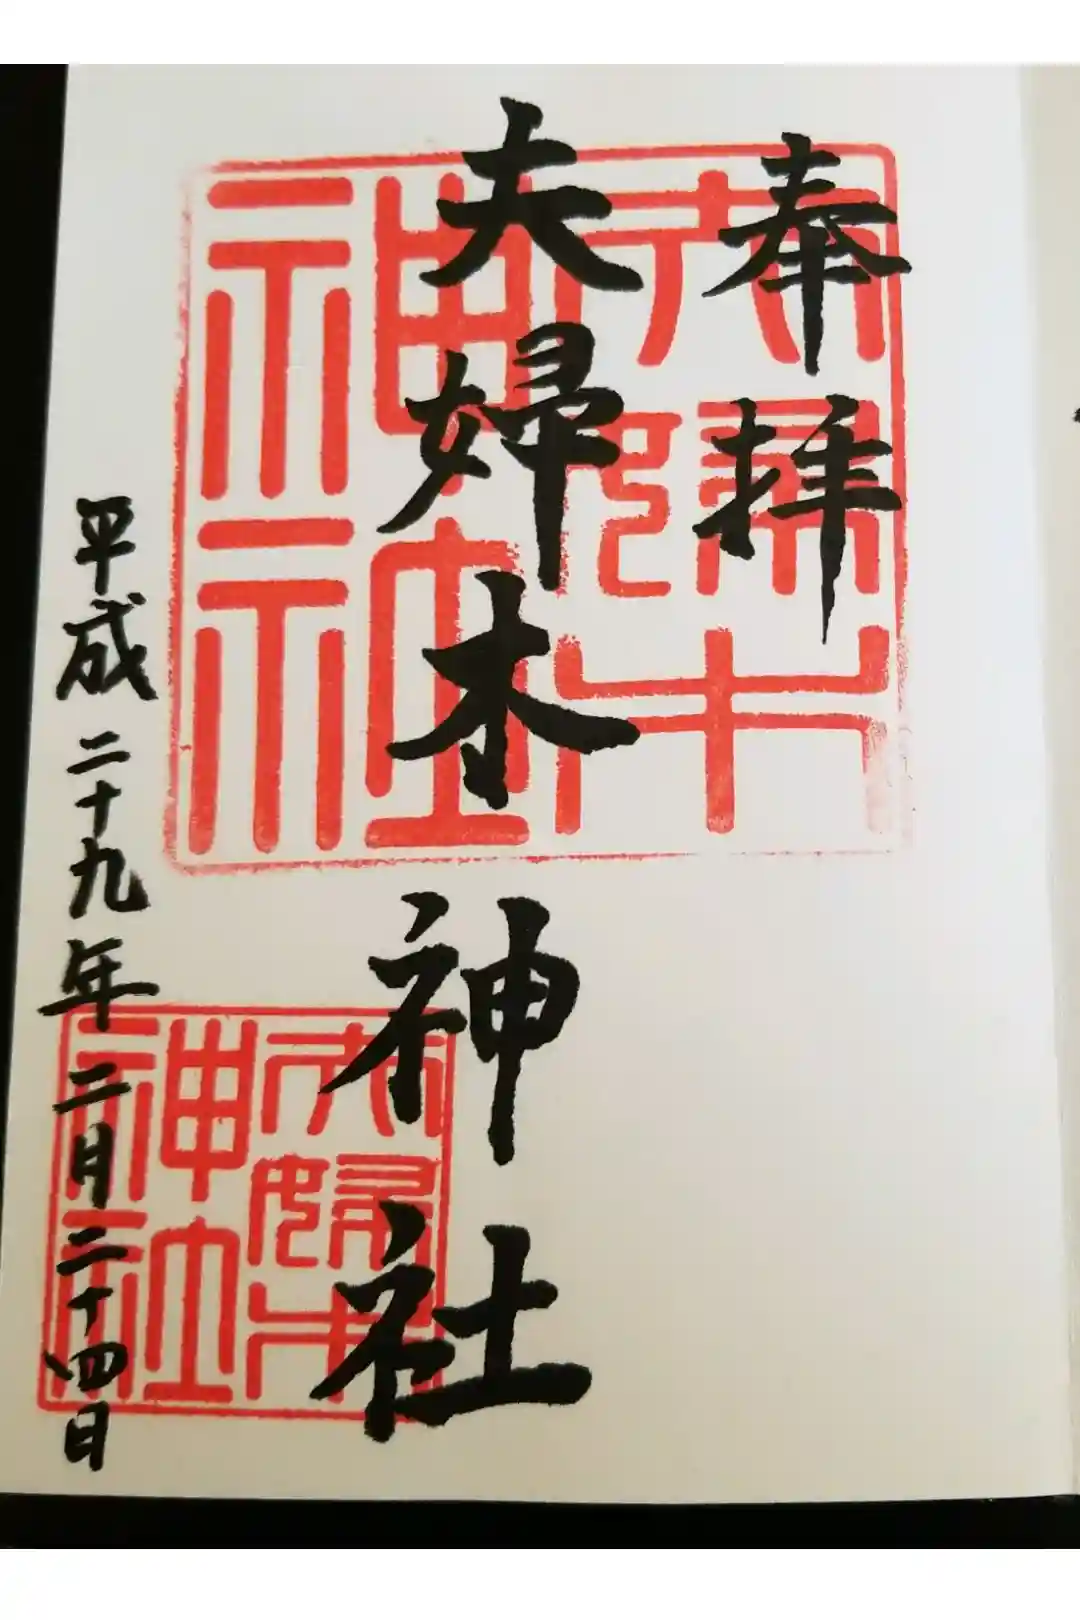 奉拝
夫婦木神社
平成二十九年二月二十四日
夫婦木神社
夫婦木神社